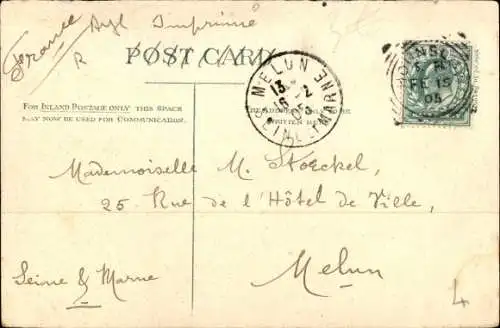 France
Imprimé
POST CARD
FOR INLAND POSTAGE ONLY THIS SPACE
MAY NOW BE USED FOR COMMUNICATION.
MELUN
13
16 - 2
05
SEINE ET MARNE
FE 15
05
Mademoiselle M. Stoeckel,
25 Rue de l'Hôtel de Ville,
Melun
Seine & Marne
4